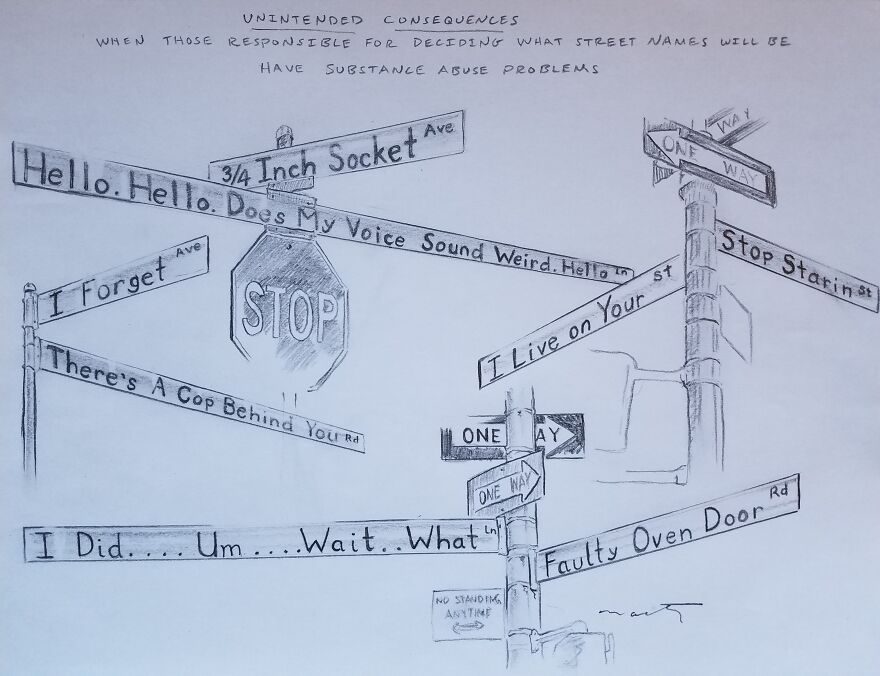 UNINTENDED CONSEQUENCES
WHEN THOSE RESPONSIBLE FOR DECIDING WHAT STREET NAMES WILL BE
HAVE SUBSTANCE ABUSE PROBLEMS
3/4 Inch Socket Ave
Hello. Hello. Does My Voice Sound Weird. Hello Ln
STOP
I Forget Ave
There's A Cop Behind You Rd
WAY
ONE WAY
Stop Starin St
I Live on Your St
ONE WAY
ONE WAY
I Did.... Um ....Wait..What Ln
Faulty Oven Door Rd
NO STANDING
ANYTIME